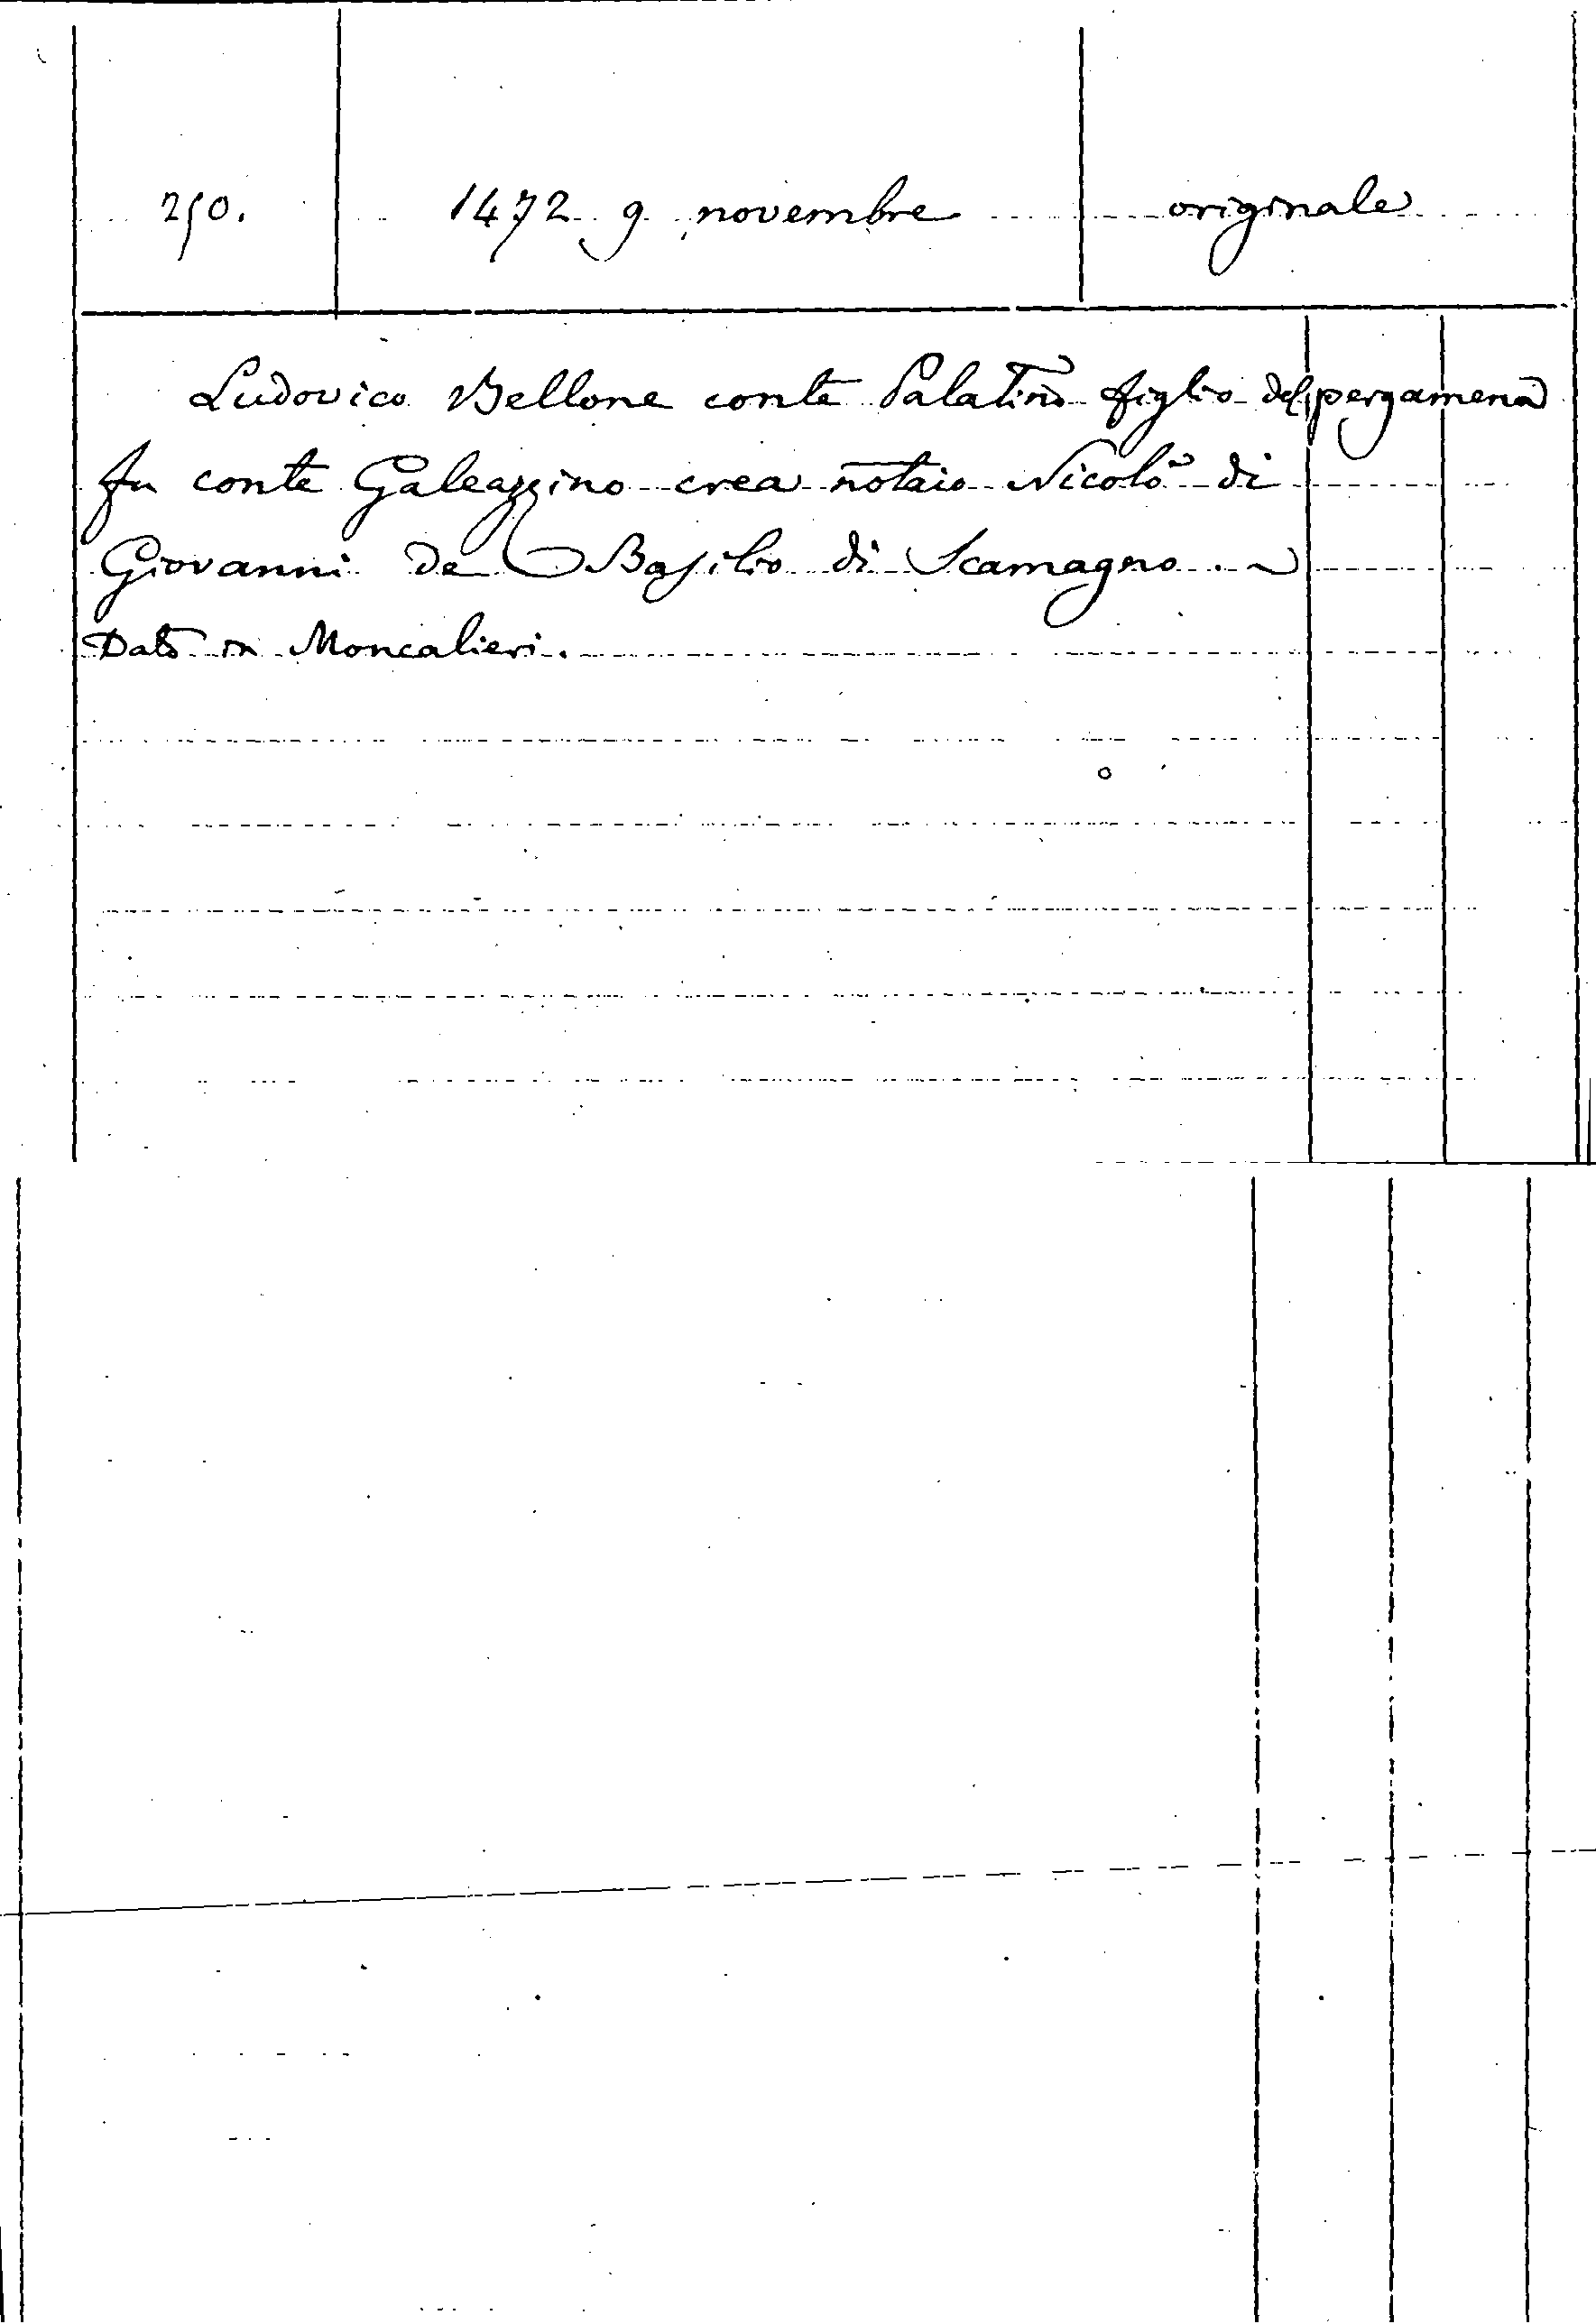 250.
1472 9 novembre
originale
Ludovico Bellone conte Palatino figlio del
pergamena
fu conte Galeazzino crea notaio Nicolò di
Giovanni de Basilio di Scamagno.
Dato in Moncalieri.